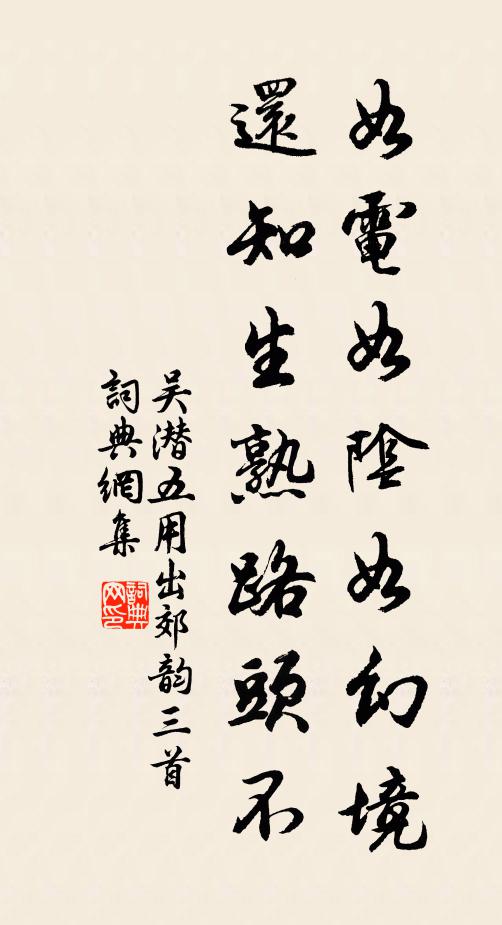 如電如陰如幻境
還知生熟路頭不
吴潜五用出郊韵三首
詞典網集
詞典
网印